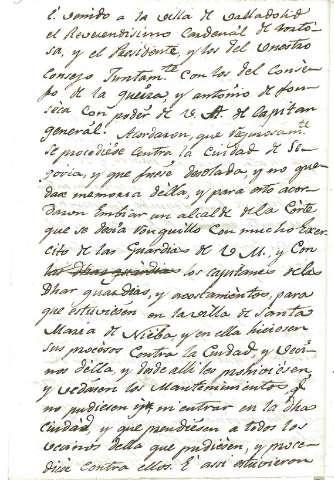 è venido a la villa de Valladolid
el Reverendissimo Cardenal de Torto-
sa, y el Presidente, y los del Vuestro
Consejo Juntam.te Con los del Conse-
jo de la guerra, y antonio de fon-
seca con poder de V. A. de Capitan
general. Acordaron, que
se procediese Contra la Ciudad de Se-
govia, y que fuese asolada, y no que-
dase memoria della, y para esto acor-
daron Embiar un alcalde de la Corte
que se decia Ronquillo Con mucho Exer-
cito de las Guardas de V. M., y Con
los Capitanes de las
dhas guardias, y acostamientos, para
que estuviesen en la villa de Santa
Maria de Nieba, y en ella hiciesen
sus procesos Contra la Ciudad, y Veci-
nos della, y desde alli les prohiviesen,
y vedasen los Mantenimientos, q.e
no pudiesen ir, ni entrar en la dha
Ciudad, y que prendiesen a todos los
vecinos della que pudiesen, y proce-
diese Contra ellos. E assi estuvieron